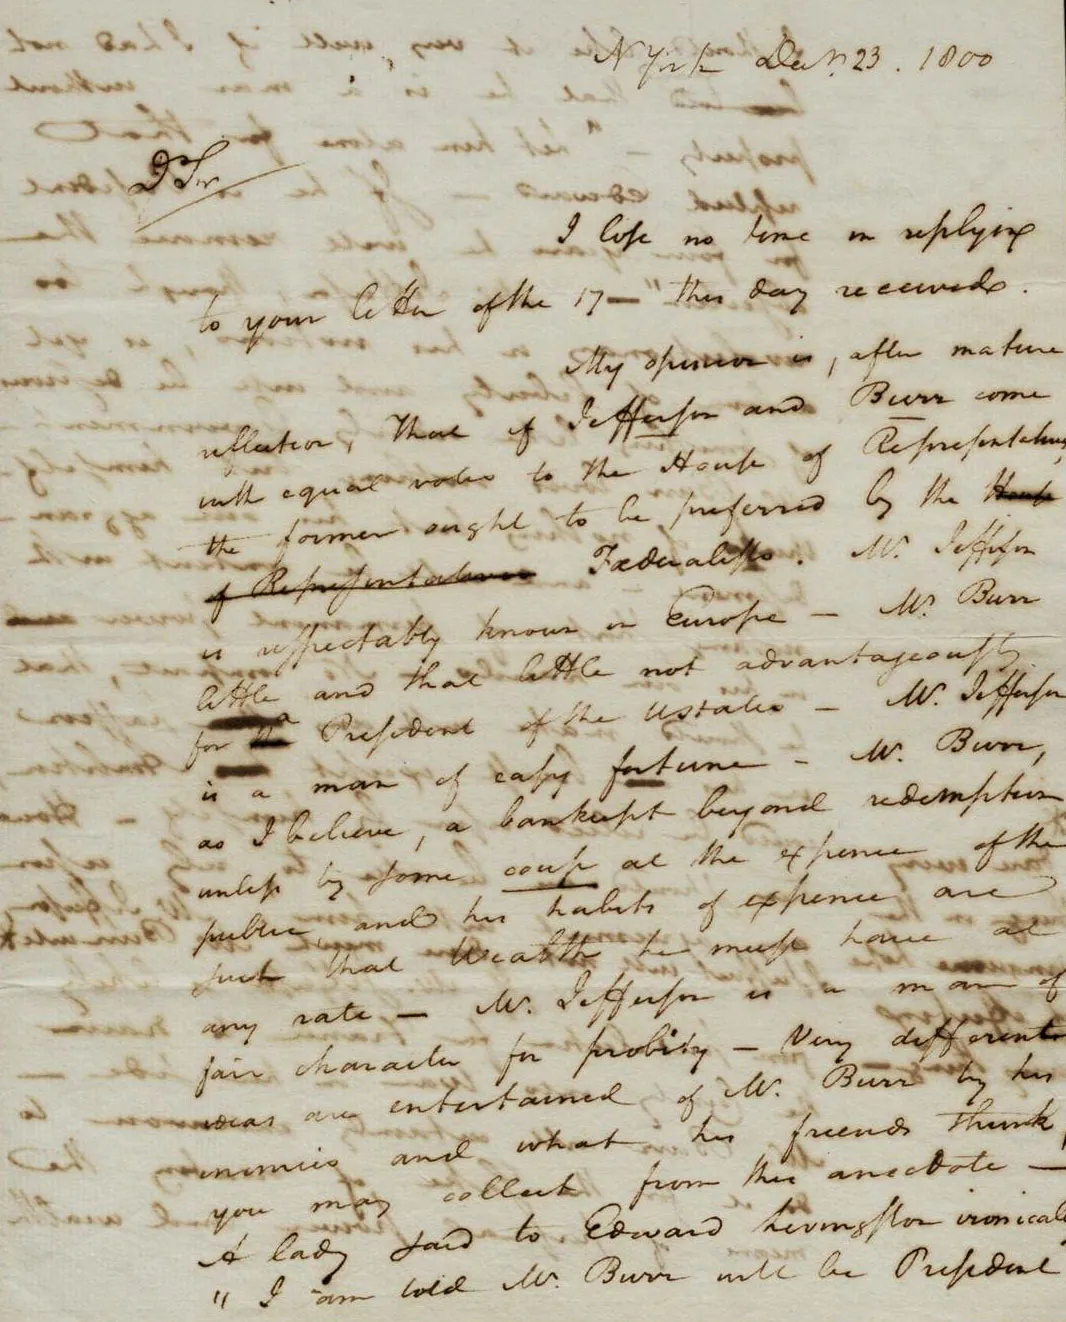 N York Decr. 23. 1800
D Sir
I lose no time in replying
to your letter of the 17— this day received.
My opinion is, after mature
reflection, that if Jefferson and Burr come
with equal votes to the House of Representatives,
the former ought to be preferred by the House
of Representatives Fœderalists. Mr. Jefferson
is respectably known in Europe — Mr. Burr
little and that little not advantageously
for a the President of the UStates — Mr. Jefferson
is a man of easy fortune — Mr. Burr,
as I believe, a bankrupt beyond redemption
unless by some coup at the expence of the
public and his habits of expence are
such that Wealth he must have at
any rate — Mr. Jefferson is a man of
fair character for probity — Very different
ideas are entertained of Mr. Burr by his
enemies and what his friends think,
you may collect from this anecdote —
A lady said to Edward Livingston ironically
"I am told Mr. Burr will be President